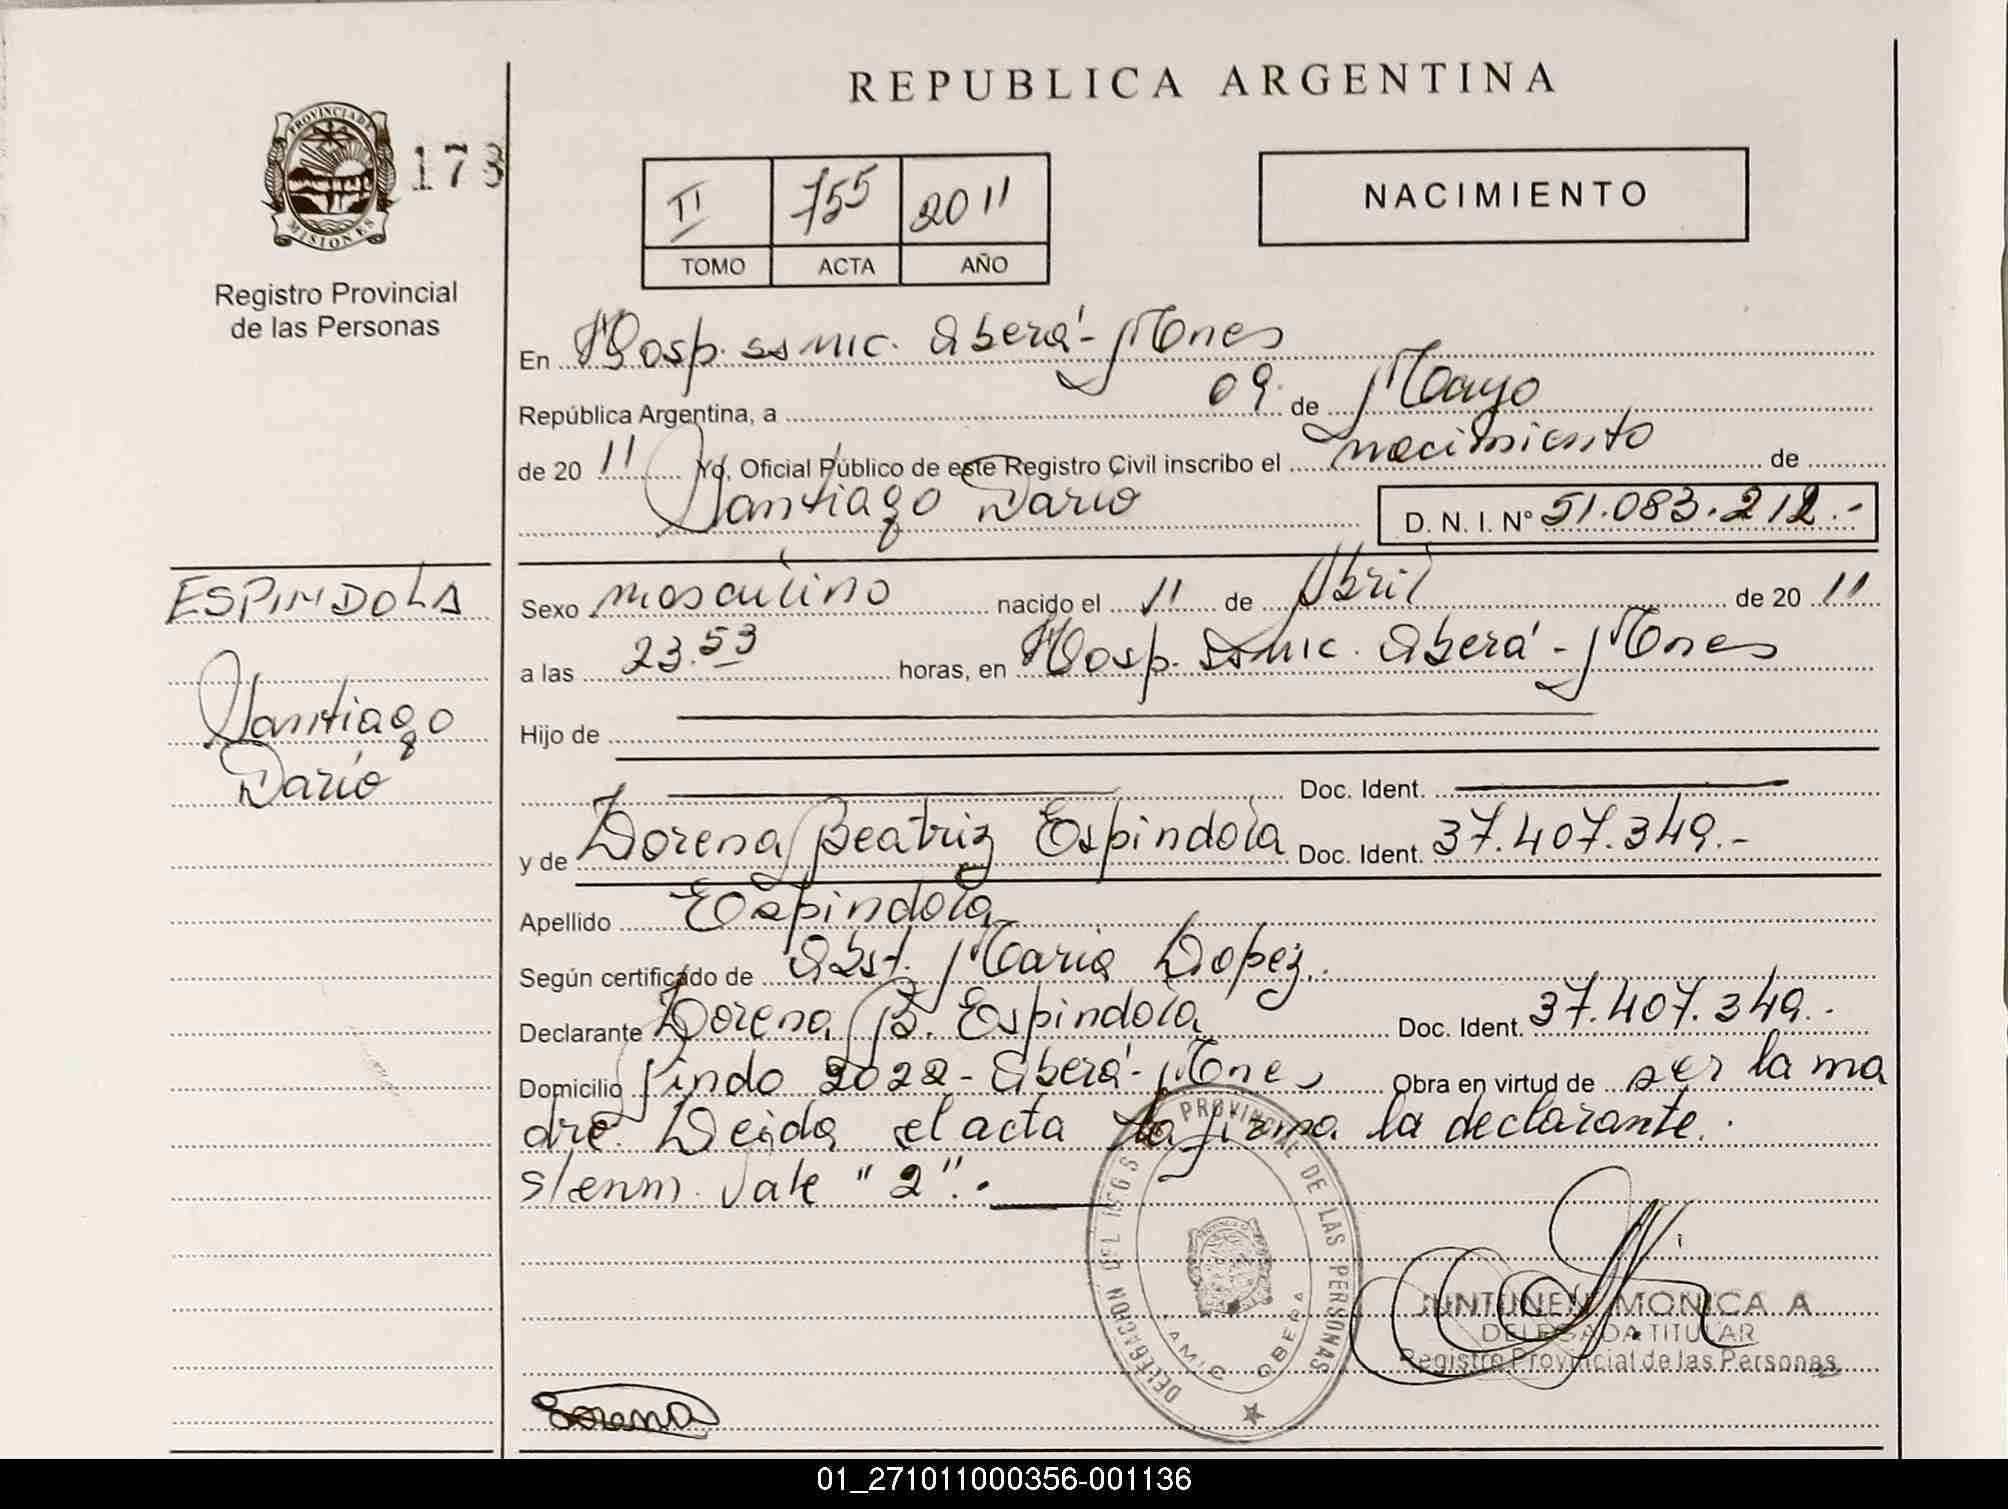 REPUBLICA ARGENTINA
PROVINCIA DE
MISIONES
173
Registro Provincial
de las Personas
II 755 2011
TOMO ACTA AÑO
NACIMIENTO
En Hosp. SSMIC. Oberá - Mnes
República Argentina, a 09 de Mayo
de 20 11 Yo, Oficial Público de este Registro Civil inscribo el nacimiento de
Santiago Dario D. N. I. N° 51.083.212.-
ESPINDOLA
Santiago
Dario
Sexo masculino nacido el 11 de Abril de 20 11
a las 23.53 horas, en Hosp. SSMIC. Oberá - Mnes
Hijo de
Doc. Ident.
y de Lorena Beatriz Espindola Doc. Ident. 37.407.349.-
Apellido Espindola
Según certificado de Obst. Maria Lopez.
Declarante Lorena B. Espindola Doc. Ident. 37.407.349.-
Domicilio Pindo 2022 - Oberá - Mnes Obra en virtud de ser la ma
dre. Leida el acta la firma la declarante.
s/enm. Vale "2".-
DELEGACION DEL REG PROVINCIAL DE LAS PERSONAS
SAMIC OBERA
JUNTUNEN MONICA A
DELEGADA TITULAR
Registro Provincial de las Personas
Lorena
01_271011000356-001136